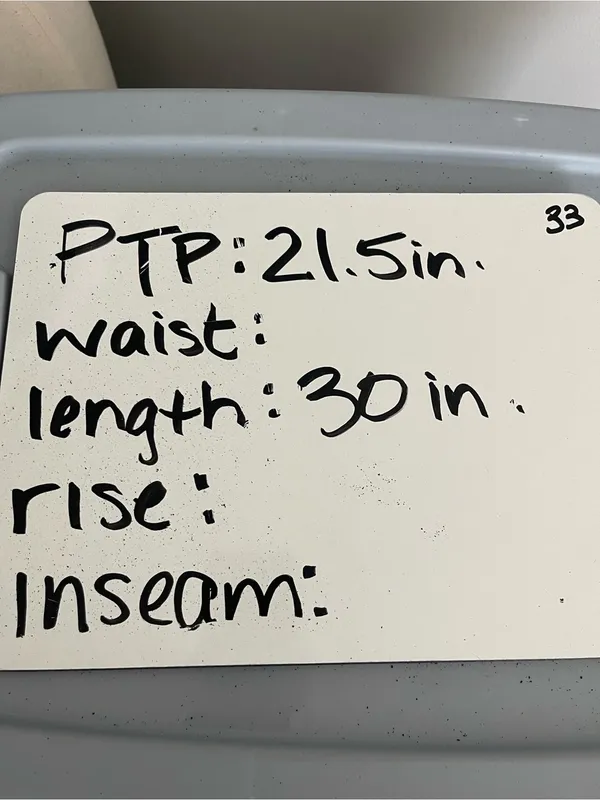 33
PTP: 21.5in.
waist:
length: 30 in.
rise:
Inseam: